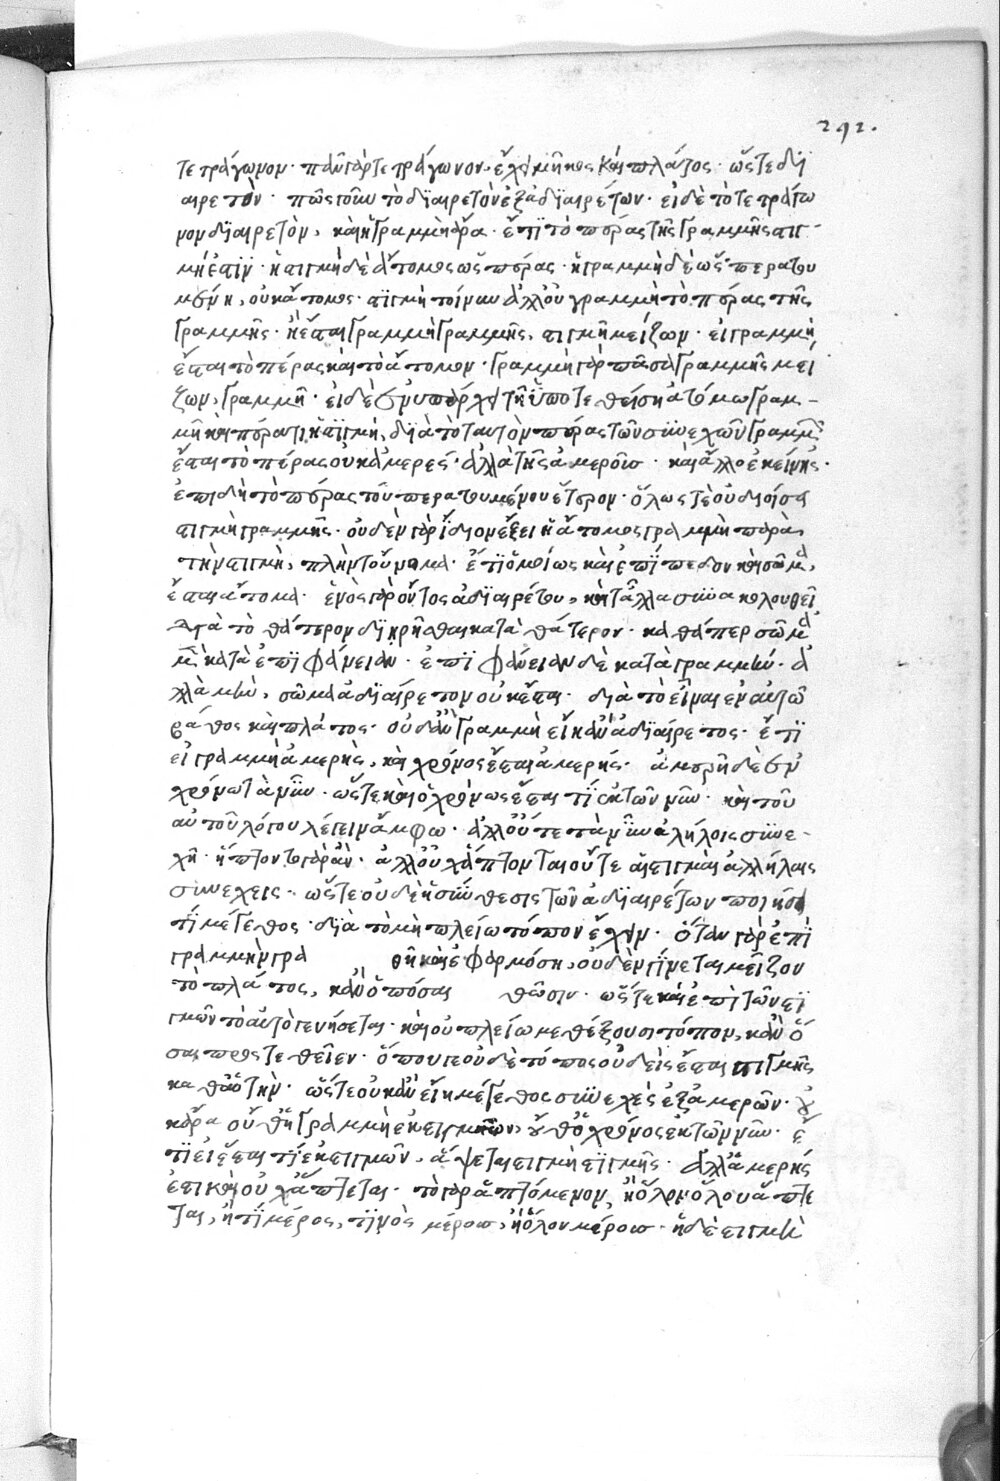 292.
τετράγωνον· πᾶν γὰρ τετράγωνον ἔχει μῆκος καὶ πλάτος· ὥστε δϊ
αιρετὸν· πῶς τοίνυν τὸ διαιρετὸν ἐξ ἀδιαιρέτων· εἰ δὲ τὸ τετράγω
νον διαιρετὸν, καὶ ἡ γραμμὴ ἄρα· ἔτι τὸ πέρας τῆς γραμμῆς στιγ
μή ἐστϊν· ἡ στιγμὴ δὲ ἄτομος ὡς πέρας· ἡ γραμμὴ δὲ ὡς περατου
μένη, οὐκ ἄτομος· στιγμὴ τοίνυν ἀλλ' οὐ γραμμὴ τὸ πέρας τῆς
γραμμῆς· ἢ ἔσται γραμμὴ γραμμῆς, στιγμῆ μείζων· εἰ γραμμὴ
ἔσται τὸ πέρας καὶ τὸ ἄτομον· γραμμὴ γὰρ πᾶσα γραμμῆς μεί
ζων, γραμμῆ· εἰ δὲ ἐνυπάρχει τῆ ὑποτεθείσῃ ἀτόμω γραμ-
μῆ καὶ πέρατι, ἡ στιγμὴ, διὰ τὸ ταυτὸν πέρας τῶν συνεχῶν γραμμῶν
ἔσται τὸ πέρας οὐκ ἀμερές· ἀλλὰ τῆς ἀμεροῦς καὶ ἄλλο ἐκείνης·
ἐπειδὴ τὸ πέρας τοῦ περατουμένου ἕτερον· ὅλως τὲ οὐ διοίσει
στιγμὴ γραμμῆς· οὐδὲν γὰρ ἴδιον ἕξει ἡ ἄτομος γραμμὴ παρὰ
τὴν στιγμὴν, πλὴν τοὔνομα· ἔτϊ ὁμοίως καὶ ἐπίπεδον καὶ σῶμα,
ἔσται ἄτομα· ἑνὸς γὰρ ὄντος ἀδϊαιρέτου, καὶ τἄλλα συνακολουθεῖ
διὰ τὸ θάτερον διηρῆσθαι κατὰ θάτερον· καθάπερ σῶμα
μὲν κατὰ ἐπϊφάνειαν· ἐπϊφάνειαν δὲ κατὰ γραμμήν· ἀ
λλὰ μὴν, σῶμα ἀδιαίρετον οὐκ ἔσται· διὰ τὸ εἶναι ἐν αὐτῶ
βάθος καὶ πλάτος· οὐδ' ἂν γραμμὴ εἴη κἂν ἀδϊαίρετος· ἔτϊ
εἰ γραμμὴ ἀμερὴς, καὶ χρόνος ἔσται ἀμερής· ἀμερῆ δὲ ἐν
χρόνω τὰ νῦν· ὥστε καὶ ὁ χρόνος ἔσται τϊ ἐκ τῶν νῦν· καὶ τοῦ
αὐτοῦ λόγου λέγειν ἄμφω· ἀλλ' οὔτε τὰ νῦν ἀλήλοις συνε-
χῆ· ἥπτοντο γὰρ ἂν· ἀλλ' οὐχ ἅπτονται οὔτε αἱ στιγμαὶ ἀλλήλαις
συνεχεις· ὥστε οὐδὲ ἡ σύνθεσις τῶν ἀδϊαιρέτων ποιήσει
τϊ μέγεθος· διὰ τὸ μὴ πλείω τόπον ἔχειν· ὅταν γὰρ ἐπϊ
γραμμὴν γρα θῆ καὶ ἐφαρμόση, οὐδὲν γίνεται μεῖζον
τὸ πλάτος, κἂν ὁπόσαι θῶσιν· ὥστε καὶ ἐπὶ τῶν στϊ
γμῶν τὸ αὐτὸ γενήσεται· καὶ οὐ πλείω μεθέξουσι τόπον, κἂν ὅ
σαι προστεθεῖεν· ὅπου γε οὐδὲ τόπος οὐδεὶς ἔσται στιγμῆς
καθ' αὑτήν· ὥστε οὐκ ἂν εἴη μέγεθος συνεχὲς ἐξ ἀμερῶν· οὐ
κ ἄρα οὔθ' ἡ γραμμὴ ἐκ στιγμῶν, οὔθ' ὁ χρόνος ἐκ τῶν νῦν· ἔ
τϊ εἰ ἔσται τὶ ἐκ στιγμῶν, ἅψεται στιγμὴ στϊγμῆς· ἀλλ' ἀμερής
ἐστι καὶ οὐχ ἅπτεται· τὸ γὰρ ἁπτόμενον, ἢ ὅλον ὅλου ἅπτε
ται, ἢ τὶ μέρος, τϊνὸς μέρους, ἢ ὅλον μέρους· ἡ δὲ στιγμὴ